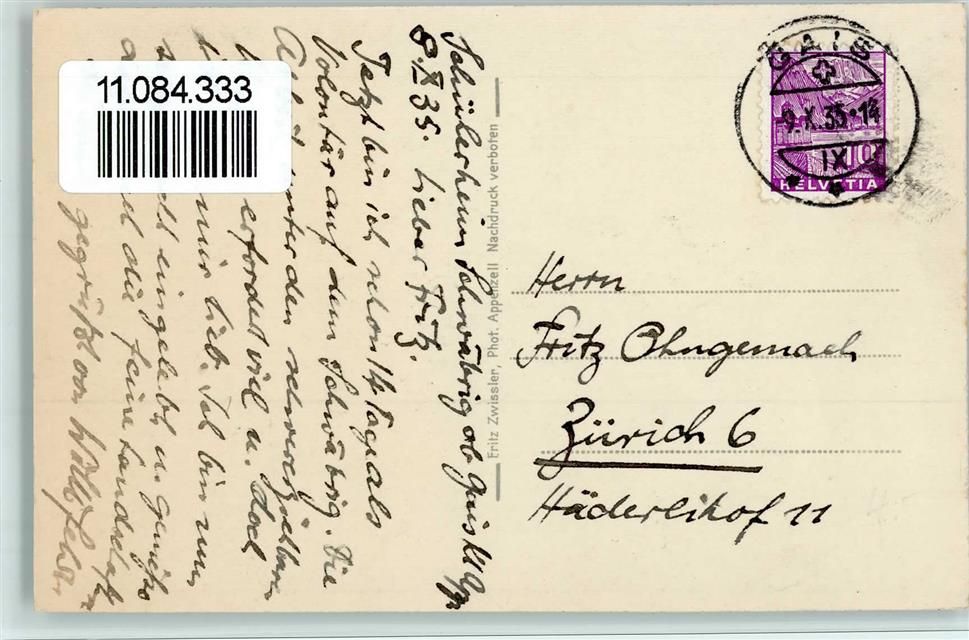 11.084.333
Schülerheim Schwäbrig ob Gais Kt App
8. X 35. Lieber Fritz.
Jetzt bin ich schon 14 Tage als
Volontär auf dem Schwäbrig. Die
unter den
erfordert viel u. doch
mir lieb. Ich bin nun
eingelebt u.
die feine Landschaft
gegrüßt von
Fritz Zwissler, Phot. Appenzell Nachdruck verboten
GAIS
9.X.35.14
IX
10
HELVETIA
Herrn
Fritz Ohngemach
Zürich 6
Häderlihof 11